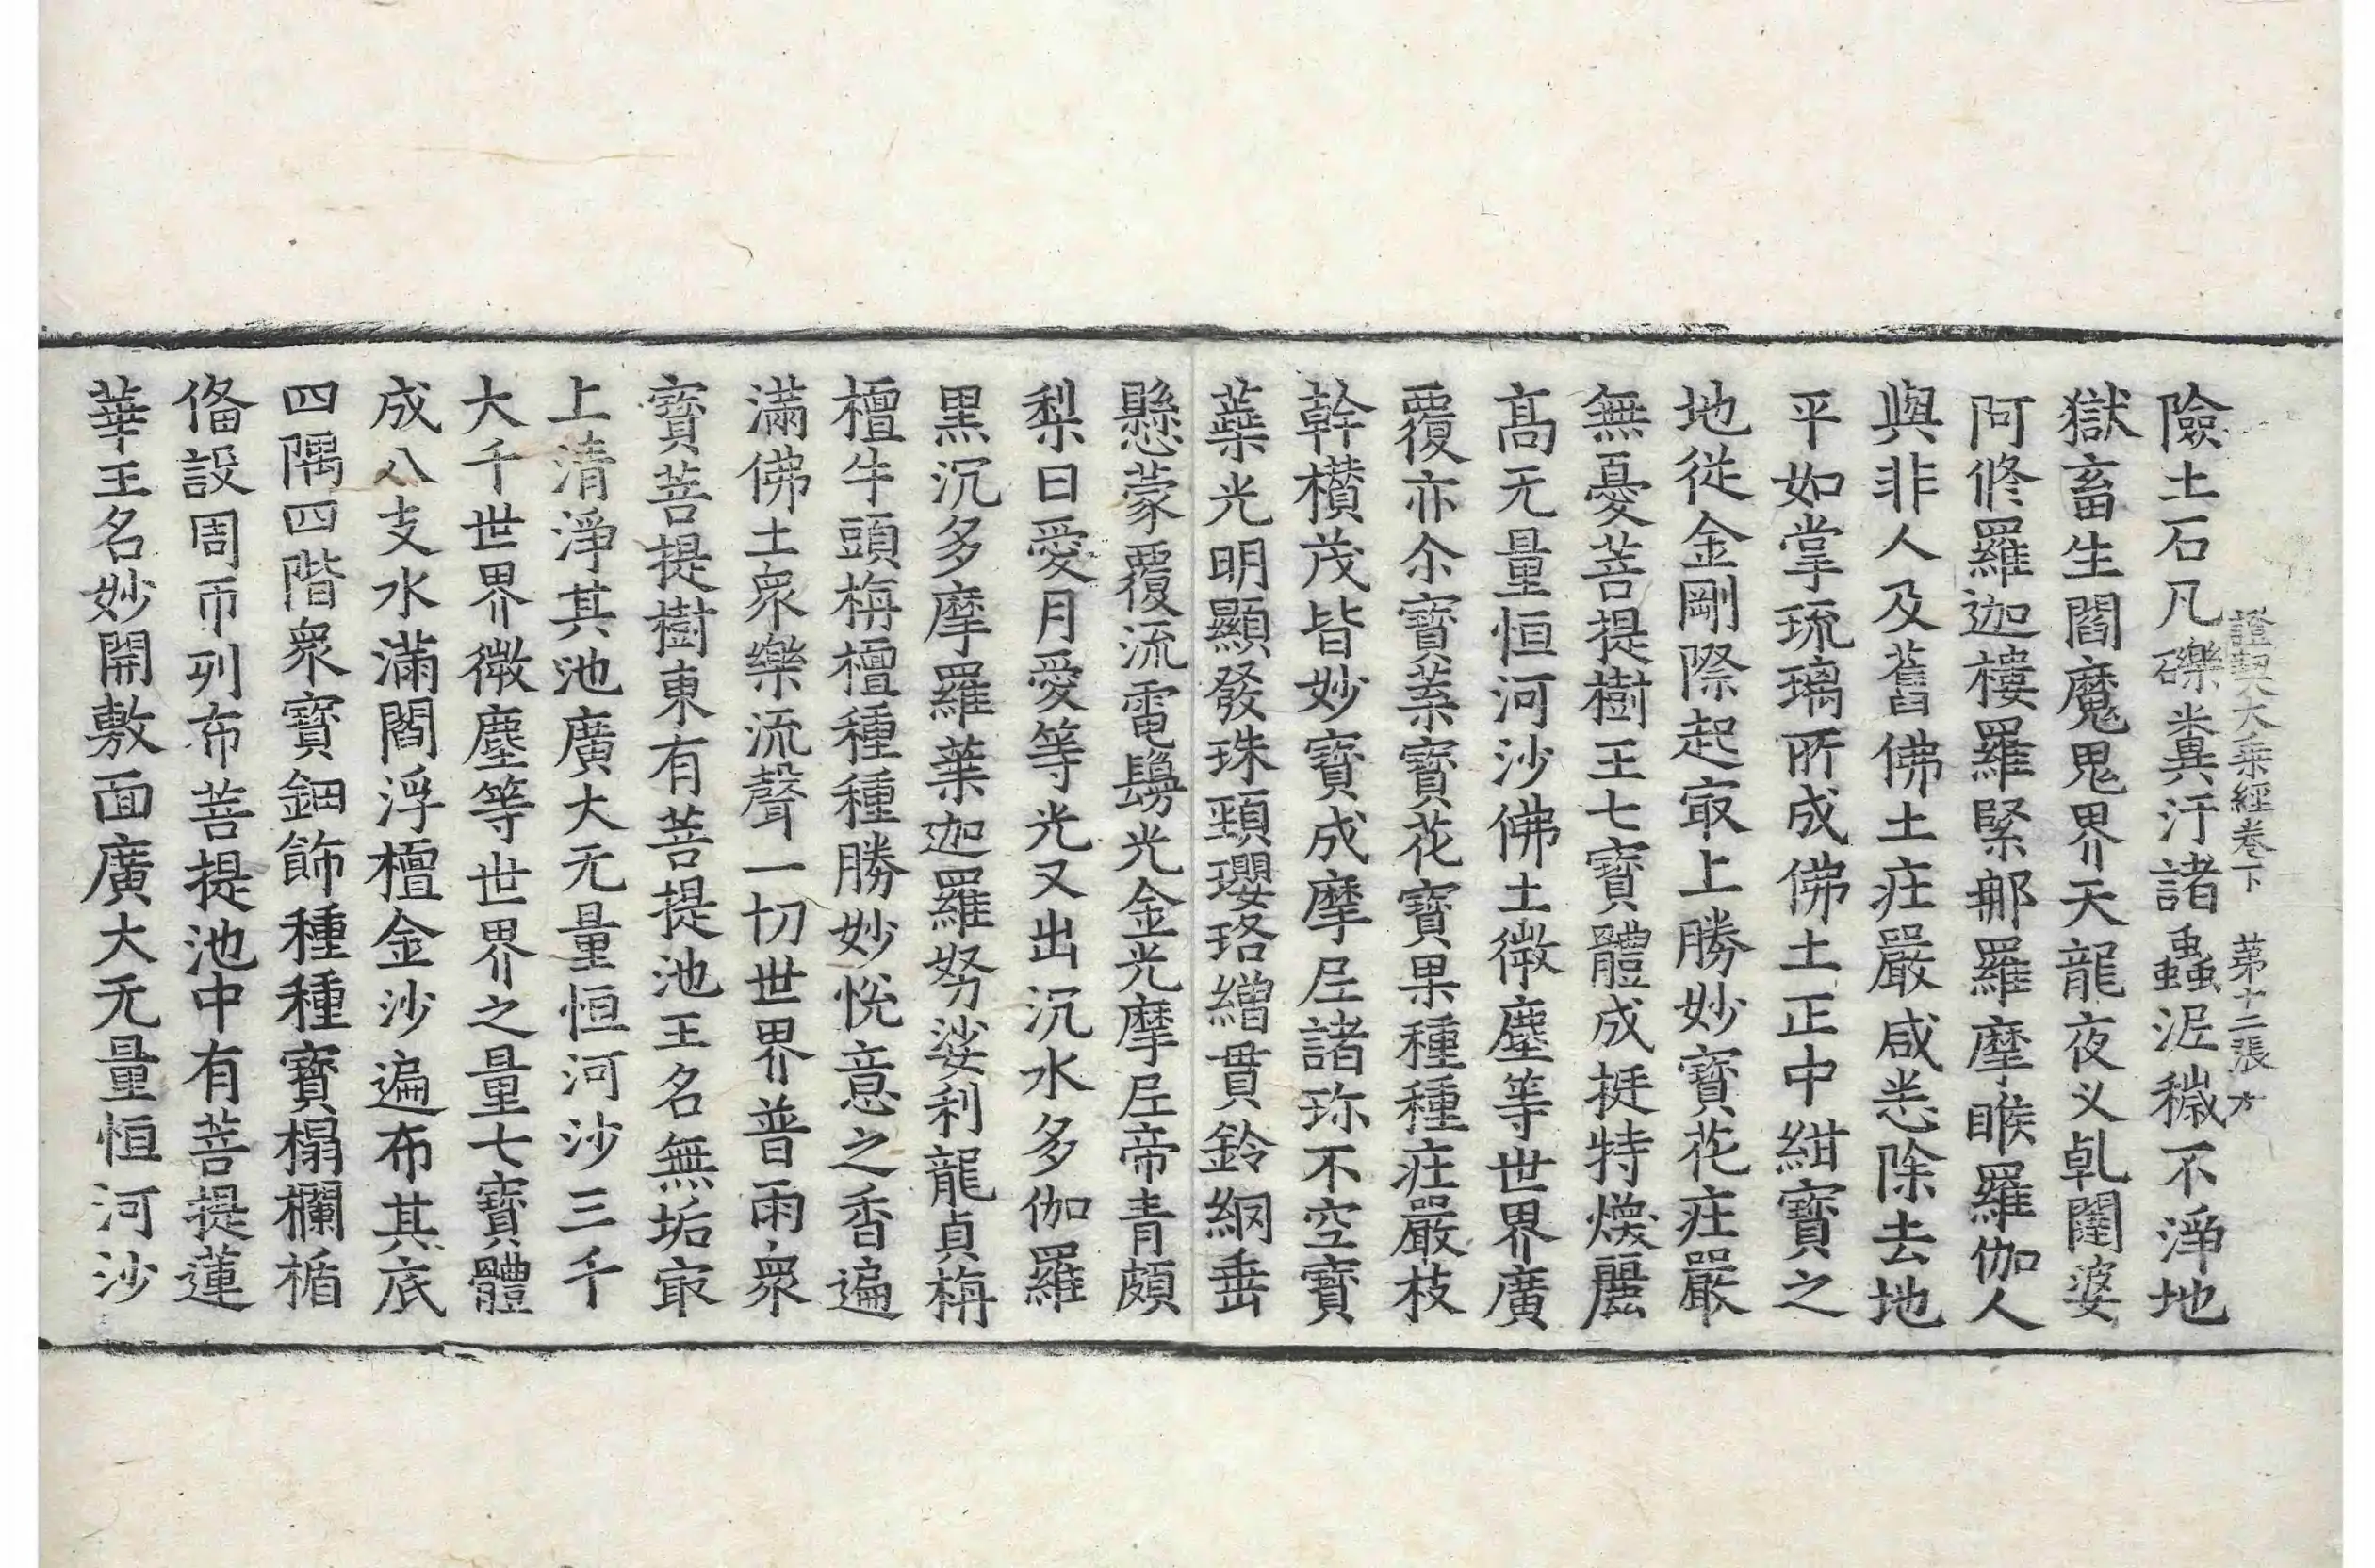 證契大乘經卷下 第十二張 才
險土石凡礫米異汙諸蟲泥穢不淨地
獄畜生閻魔鬼界天龍夜义乹闥婆
阿脩羅迦樓羅緊那羅摩睺羅伽人
與非人及舊佛土莊嚴咸悉除去地
平如掌琉璃所成佛土正中紺寶之
地從金剛際起㝡上勝妙寶花莊嚴
無憂菩提樹王七寶體成挺特煥麗
髙无量恒河沙佛土微塵等世界廣
覆亦尒寶葉寶花寶果種種莊嚴枝
幹欑茂皆妙寶成摩尼諸珎不空寶
蘂光明顯發珠頸瓔珞繒貫鈴網垂
懸蒙覆流電鬘光金光摩尼帝青頗
梨日愛月愛等光又出沉水多伽羅
黒沉多摩羅葉迦羅努娑利龍貞栴
檀牛頭栴檀種種勝妙悅意之香遍
滿佛土衆樂流聲一切世界普雨衆
寶菩提樹東有菩提池王名無垢㝡
上清淨其池廣大无量恒河沙三千
大千世界微塵等世界之量七寶體
成八支水滿閻浮檀金沙遍布其底
四隅四階衆寶鈿飾種種寶榻欄楯
俻設周帀列布菩提池中有菩提蓮
華王名妙開敷面廣大无量恒河沙